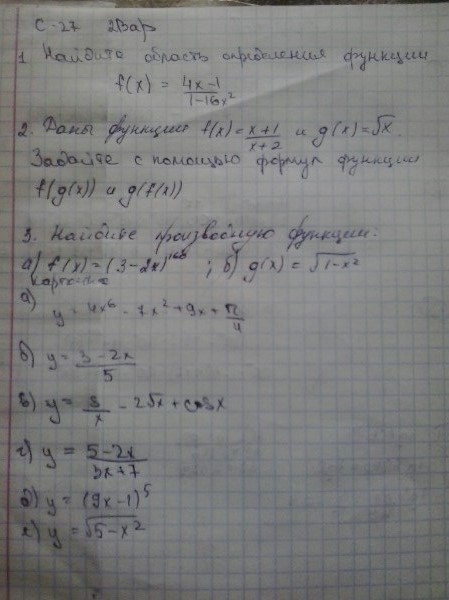 С-27 2Вар
1. Найдите область определения функции
f(x) = (4x-1)/(1-16x²)
2. Даны функции f(x) = (x+1)/(x+2) и g(x) = √x.
Задайте с помощью формул функции
f(g(x)) и g(f(x))
3. Найдите производную функции:
а) f(x) = (3-2x) ; б) g(x) = √(1-x²)
карточка
а) y = 4x⁶ - 7x² + 9x + π/4
б) y = (3-2x)/5
в) y = 3/x - 2√x + cosx
г) y = (5-2x)/(3x+7)
д) y = (9x-1)⁵
е) y = √(5-x²)